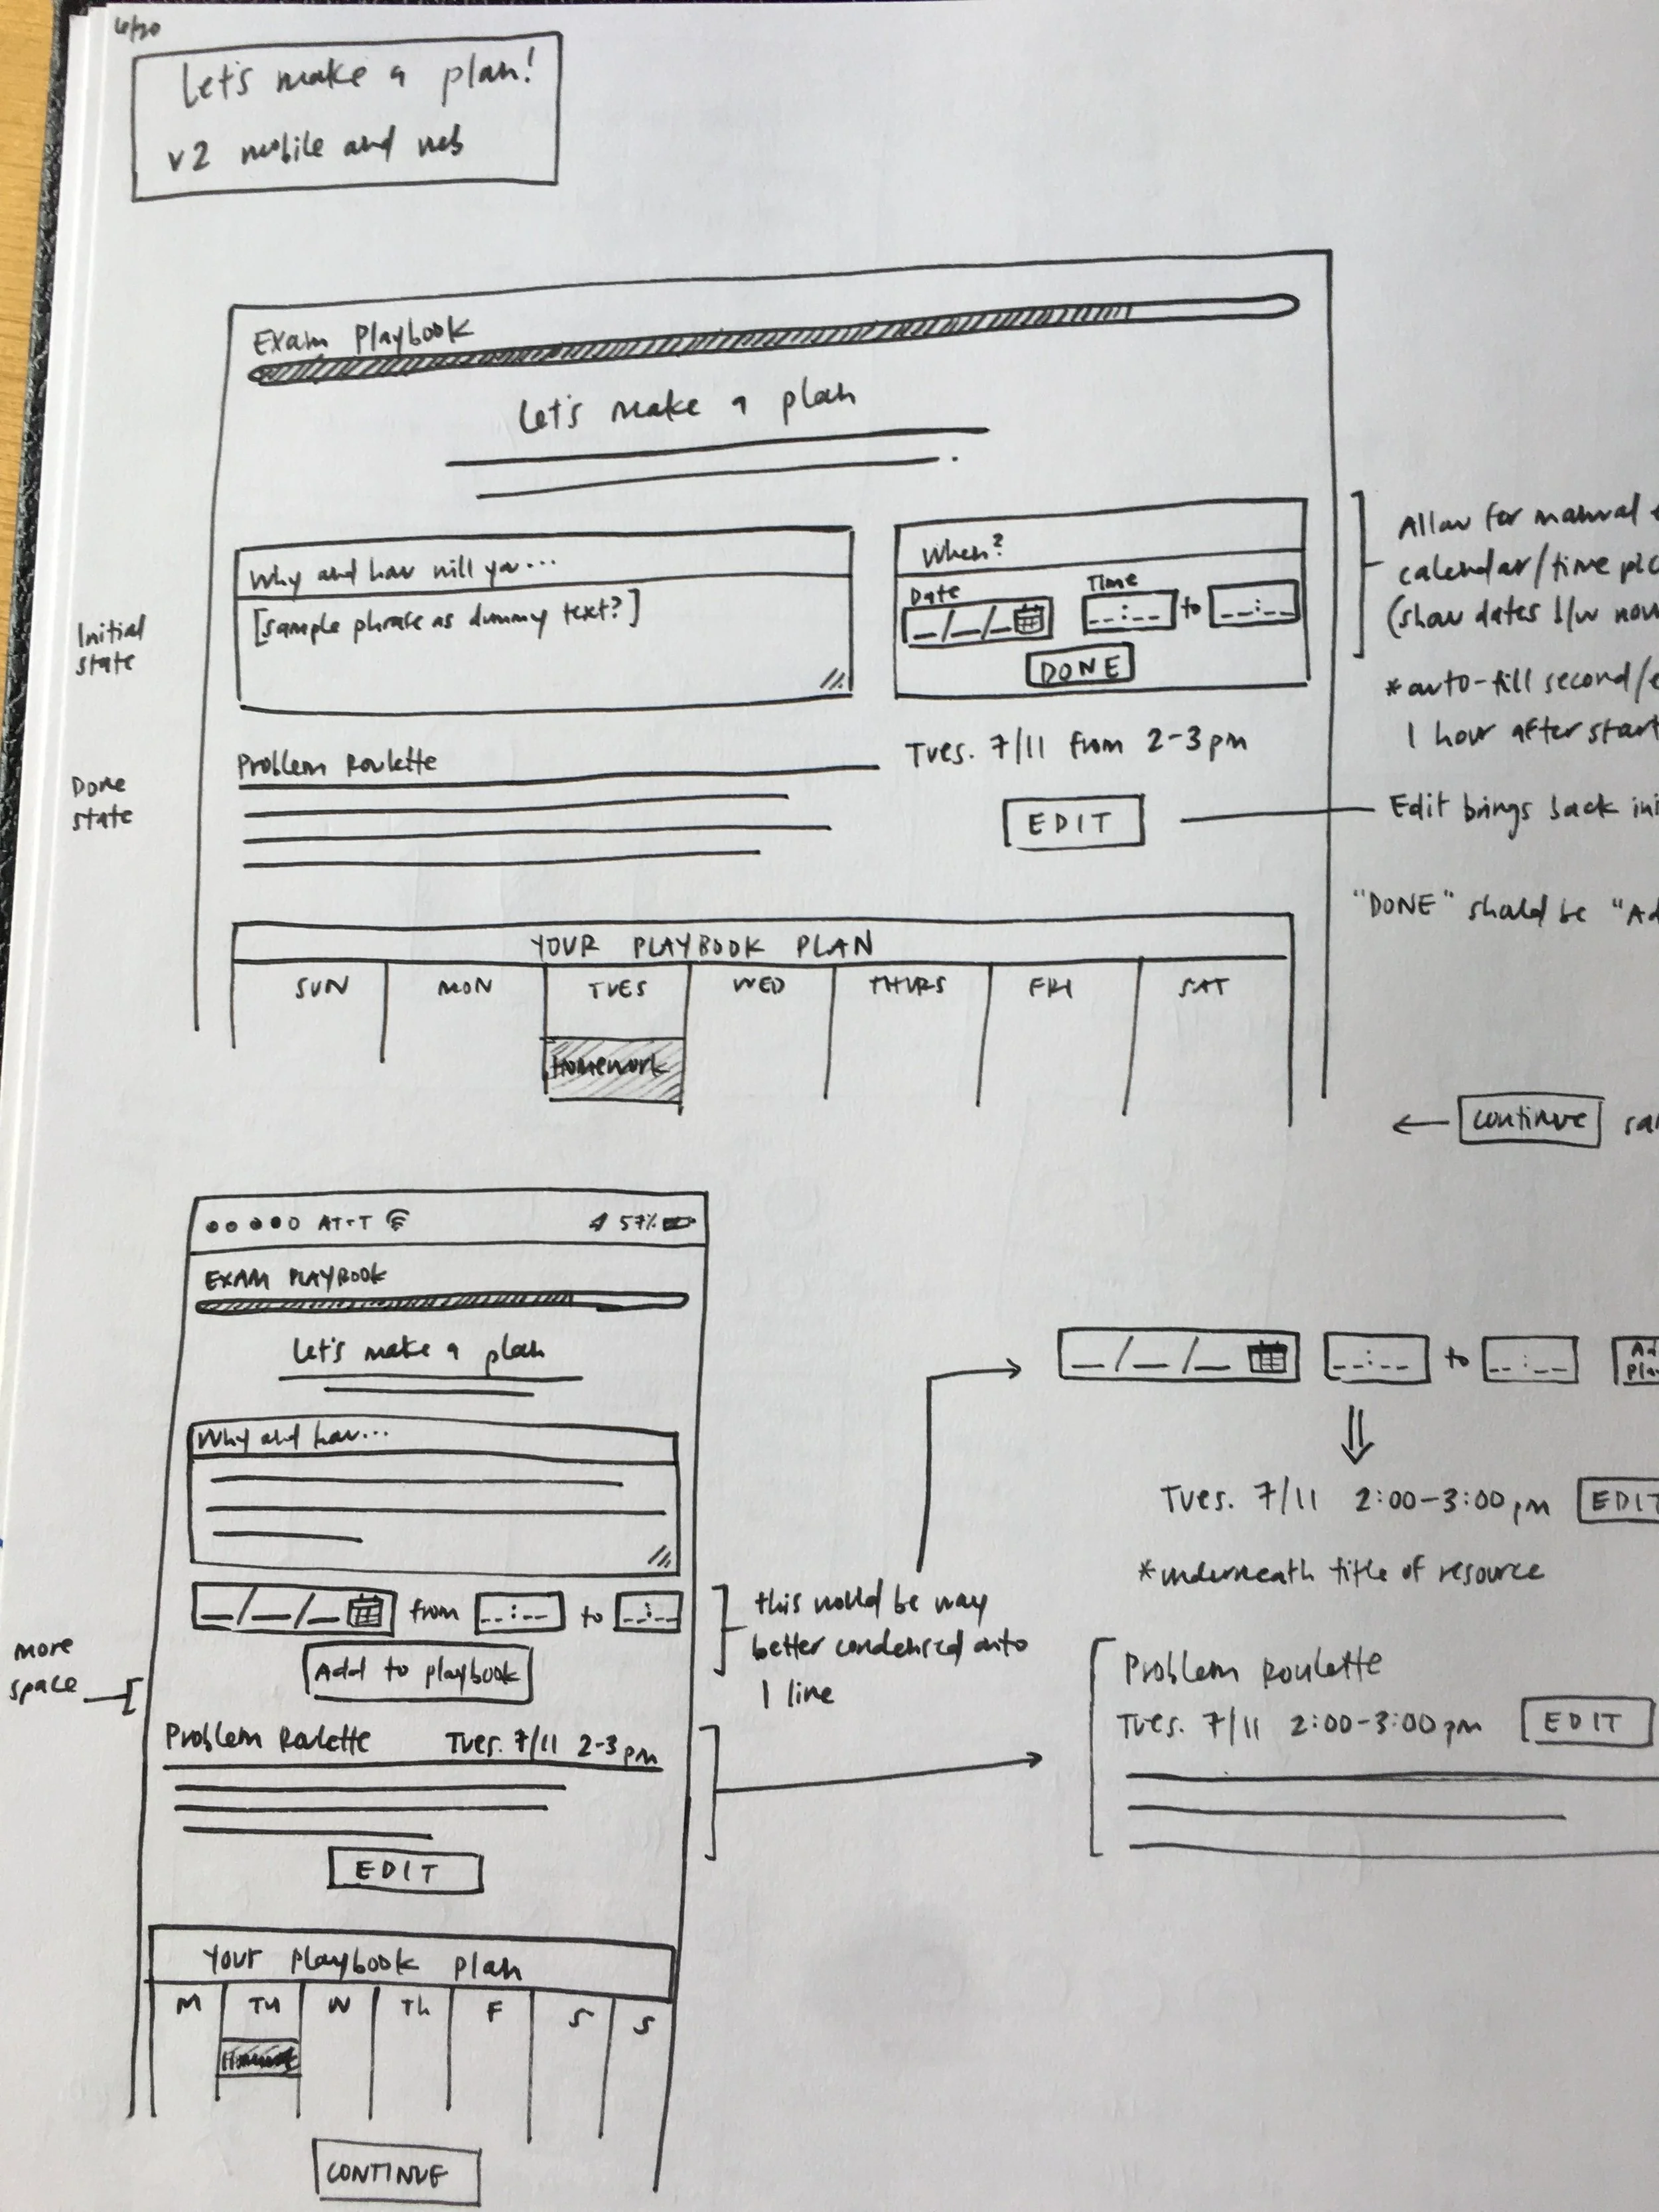 6/20
Let's make a plan!
v2 mobile and web
Exam Playbook
Let's make a plan
Why and how will you...
[sample phrase as dummy text?]
When?
Date
Time
__/__/__
__:__ to __:__
DONE
Initial
state
Allow for manual
calendar/time pic
(show dates b/w now
*auto-fill second/e
1 hour after start
Done
state
Problem Roulette
Tues. 7/11 from 2-3pm
EDIT
Edit brings back ini
"DONE" should be "Ad
YOUR PLAYBOOK PLAN
SUN MON TUES WED THURS FRI SAT
Homework
← continue
AT+T 57%
EXAM PLAYBOOK
Let's make a plan
Why and how...
__/__/__ from __:__ to __:__
Add to playbook
more
space
this would be way
better condensed onto
1 line
__/__/__ __:__ to __:__
Ad
Pla
Tues. 7/11 2:00-3:00pm EDIT
*underneath title of resource
Problem Roulette Tues. 7/11 2-3pm
EDIT
Problem Roulette
Tues. 7/11 2:00-3:00pm EDIT
Your playbook plan
M Tu W Th F S S
CONTINUE